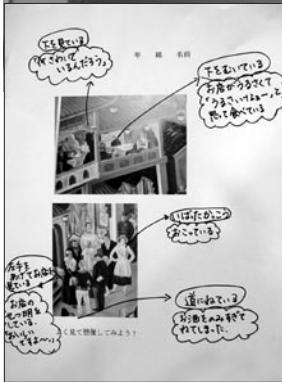 下を見ている
「何さわいで
いるんだろう」
年　組　名前
下をむいている
お店がうるさくて
「うるさいけよぉー」と
思って食べている
いばったかっこう
おこっている
左手を
あげてお店を
見ている
お店の
せつ明を
している。
「おいしい
ですよ〜」
道にねている
お酒をのみすぎて
ねてしまった。
よく見て想像してみよう！